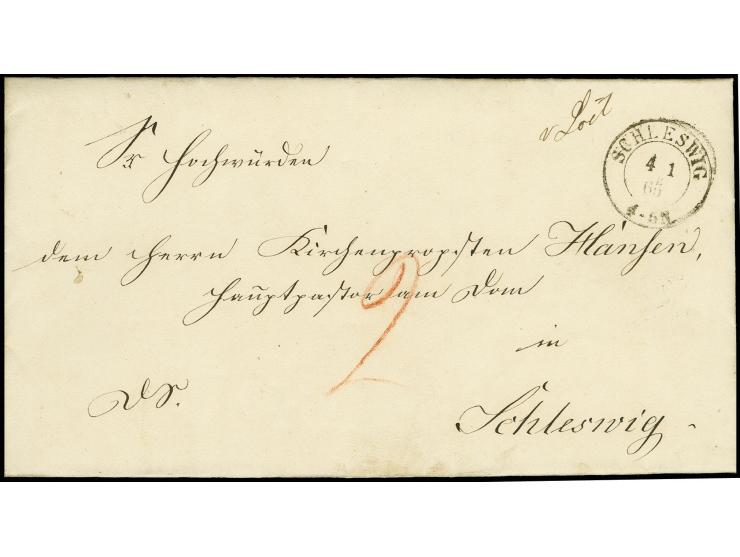 v Loit
SCHLESWIG
4 1
65
4-5N.
Sr Hochwürden
dem Herrn Kirchenpropsten Hansen,
Hauptpastor am Dom
2
in
DS.
Schleswig